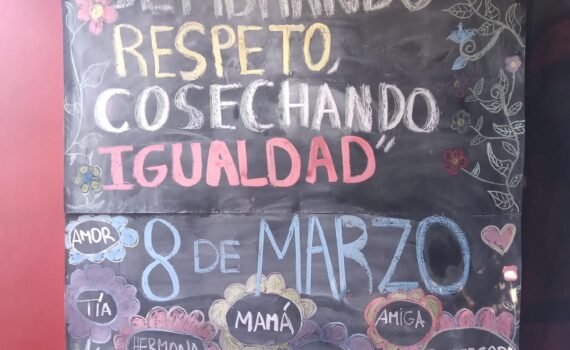 SEMBRANDO
RESPETO,
COSECHANDO
IGUALDAD"
AMOR
8 DE MARZO
TÍA
MAMÁ
AMIGA
HERMANA